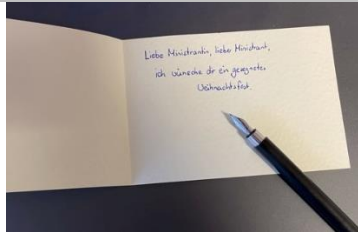 Liebe Ministrantin, lieber Ministrant,
ich wünsche dir ein gesegnetes
Weihnachtsfest.